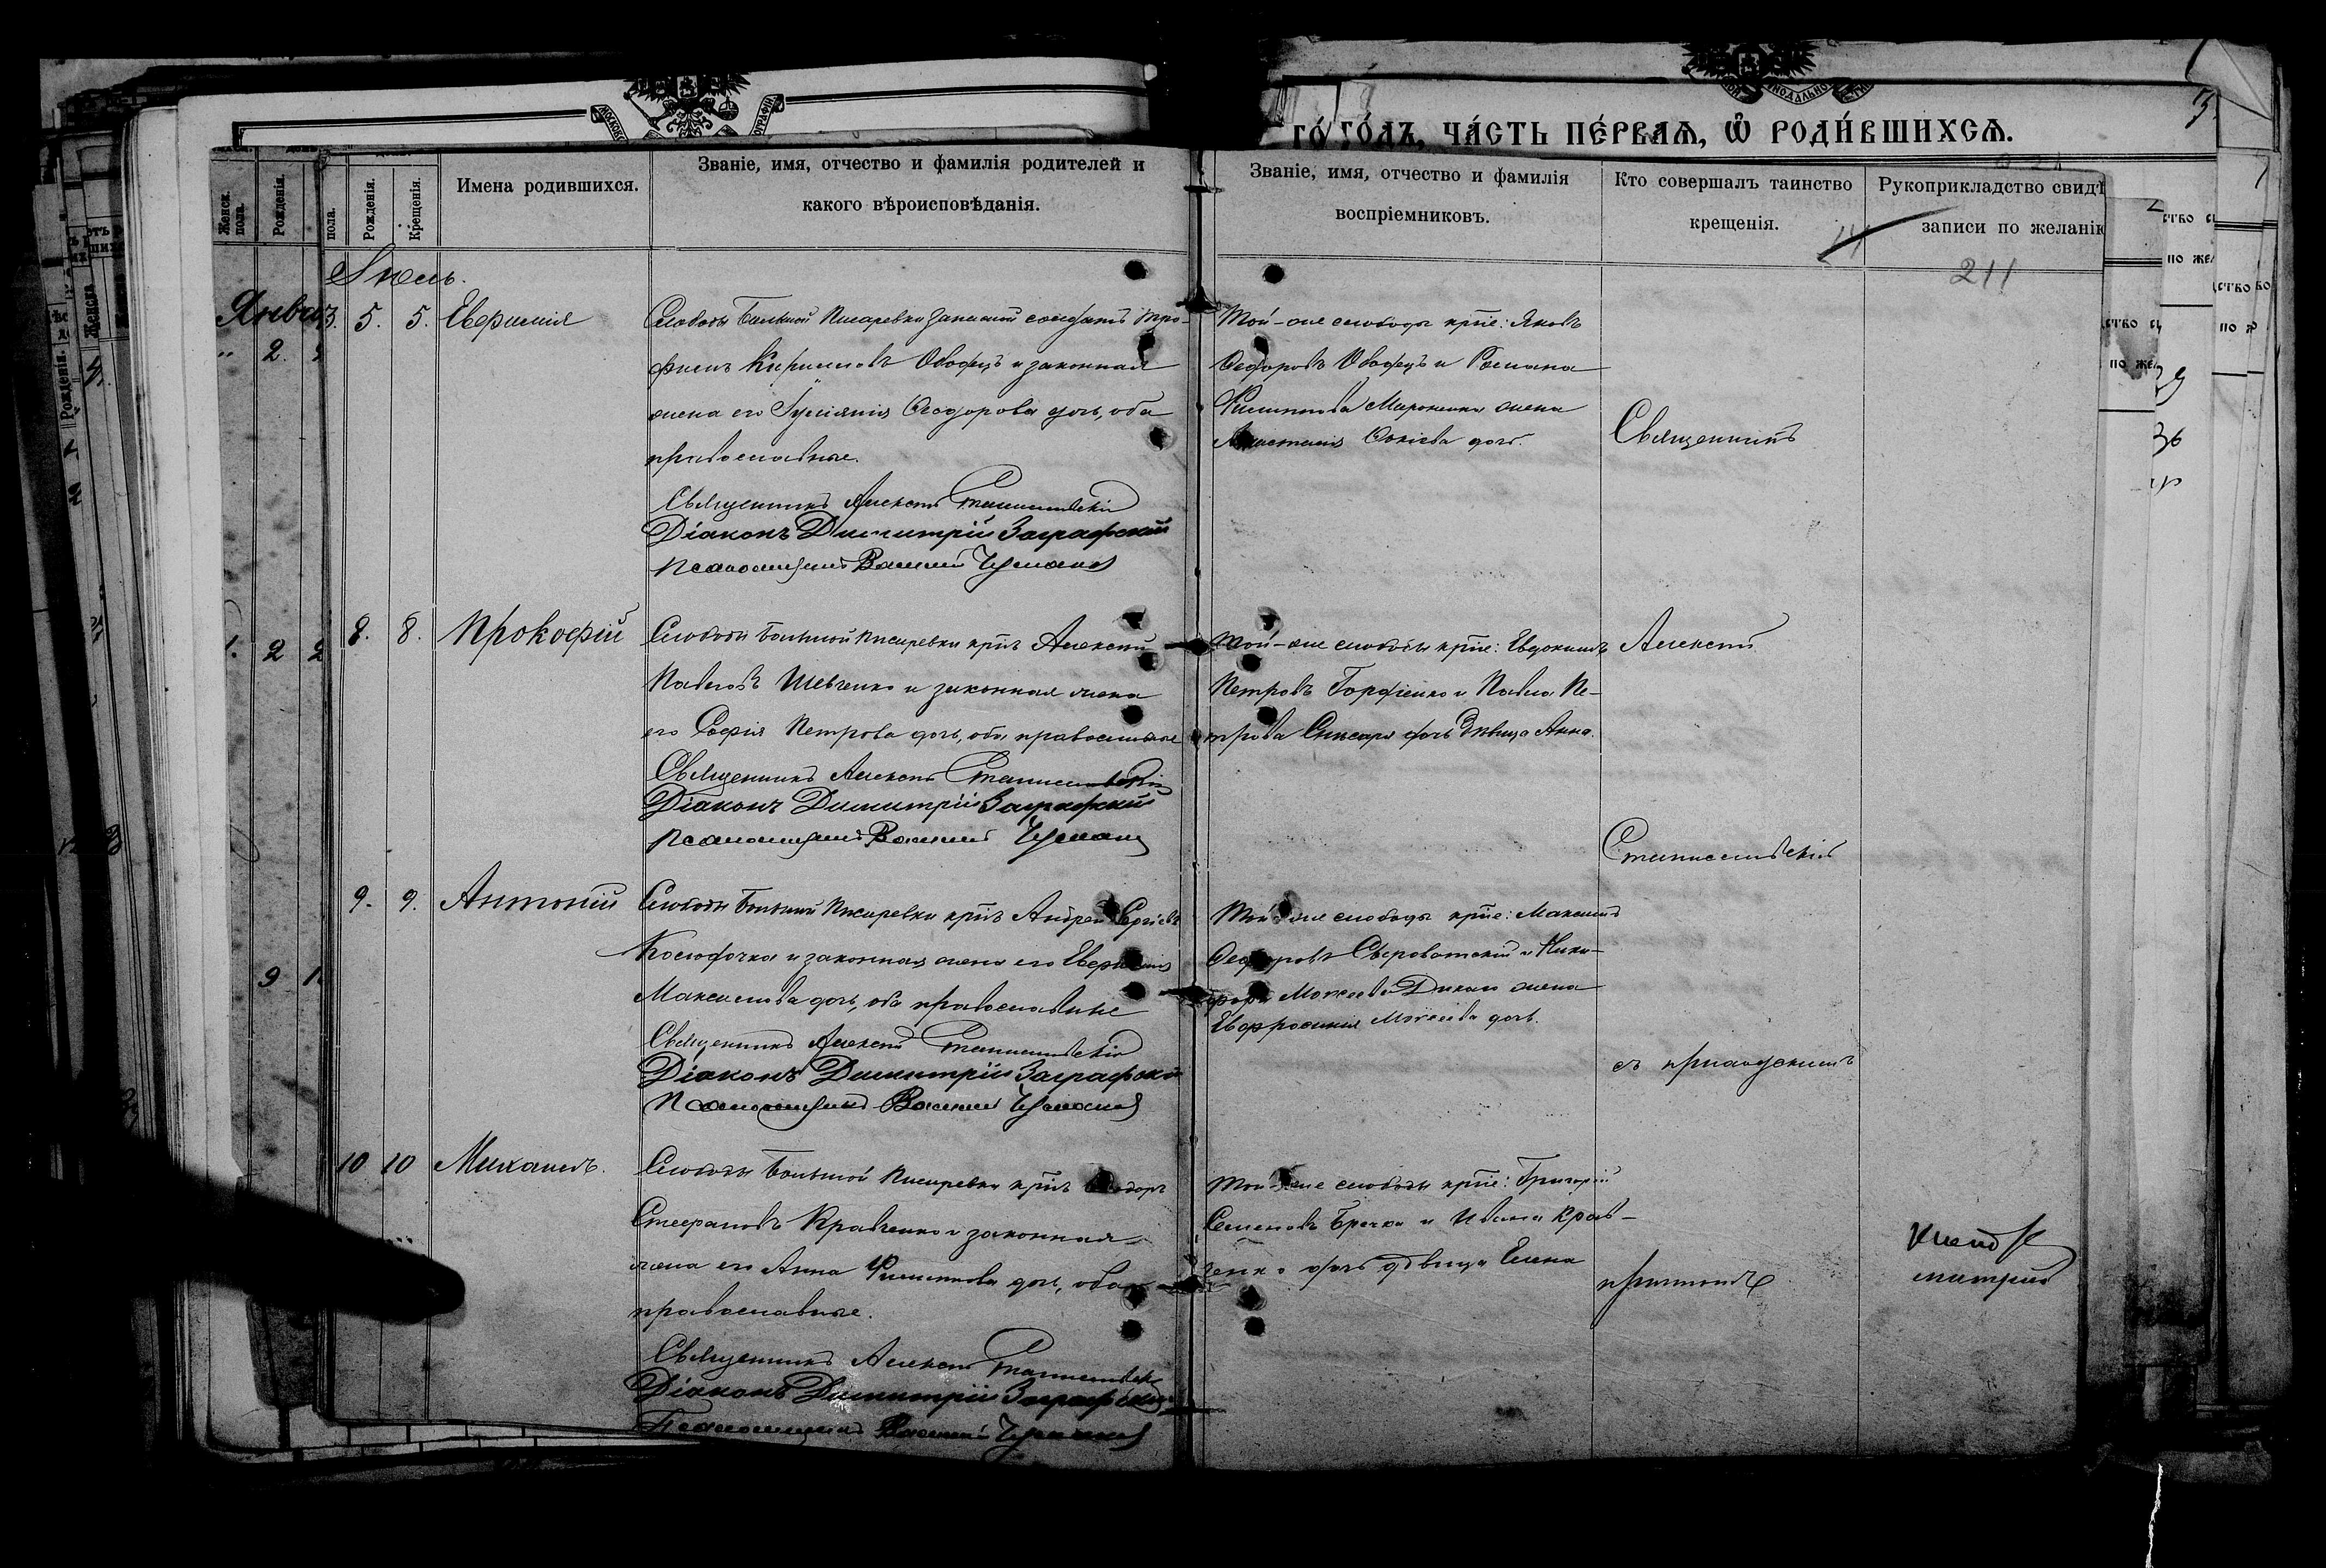 МОСКОВС
ОГРАФІИ.
ИНОДАЛЬНО
ГО́ ГО́ДЪ, ЧА́СТЬ ПЕ́РВАѦ, Ѿ РОДИ́ВШИХСѦ.
Женск. пола.
Рожденія.
пола.
Рожденія.
Крещенія.
Имена родившихся.
Званіе, имя, отчество и фамилія родителей и
какого вѣроисповѣданія.
Званіе, имя, отчество и фамилія
воспріемниковъ.
Кто совершалъ таинство
крещенія.
Рукоприкладство свидѣ
записи по желанію
14
211
Іюль.
Январ
2.
3. 5. 5. Евфимія
Слободы Большой Писаревки запасной солдатъ Тро-
фимъ Кириловъ Ободецъ и законная
жена его Іуліанія Ѳеодорова дочь, оба
православные.
Священникъ Алексѣй Станиславскій
Діаконъ Димитрій Заграфскій
Псаломщикъ Василій
Той-же слободы крѣ-не: Яковъ
Ѳедоровъ Ободецъ и Романа
Филиппова жена
Анастасія дочь.
Священникъ
1. 2 2
8. 8. Прокофій
Слободы Большой Писаревки крнъ Алексѣй
Павловъ Шевченко и законная жена
его Софія Петрова дочь, оба православные
Священникъ Алексѣй Станиславскій
Діаконъ Димитрій Заграфскій
Псаломщикъ Василій
Той-же слободы крне: Евдокимъ
Петровъ Гордіенко и Павла Пе-
трова Слисаря дочь дѣвица Анна.
Алексѣй
Станиславскій
9. 9. Антоній
Слободы Большой Писаревки крнъ Андрей Сергіевъ
и законная жена его Евфимія
Максимова дочь, оба православные
Священникъ Алексѣй Станиславскій
Діаконъ Димитрій Заграфскій
Псаломщикъ Василій
Той-же слободы крне: Максимъ
Ѳедоровъ Сыроватскій и Ники-
фора Моисеева жена
Евфросинія Моисеева дочь.
9
съ приходскимъ
10 10 Михаилъ.
Слободы Большой Писаревки крнъ Ѳеодоръ
Стефановъ Кравченко и законная
жена его Анна Филиппова дочь, оба
православные.
Священникъ Алексѣй Станиславскій
Діаконъ Димитрій Заграфскій
Псаломщикъ Василій
Той-же слободы крне: Григорій
Семеновъ Бречка и Ивана Крав-
ченко дочь дѣвица Елена
причтомъ